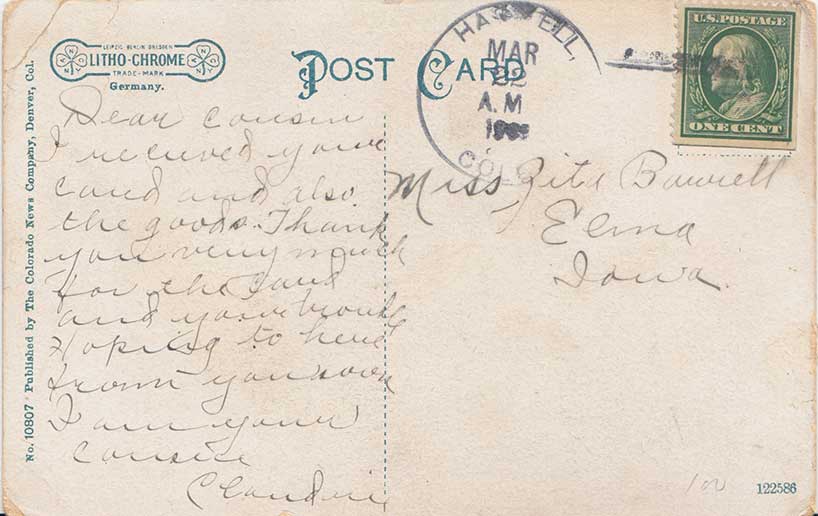 LEIPZIG BERLIN DRESDEN
LITHO-CHROME
TRADE-MARK
Germany.
POST CARD
HASWELL,
MAR
22
A.M
COL
U.S. POSTAGE
ONE CENT
No. 10807 Published by The Colorado News Company, Denver, Col.
Dear Cousin
I received youre
Card and also
the goods. Thank
you very much
for the Card
and youre trouble
Hoping to here
from you soon
I am your
Cousin
Miss Zita
Elma
Iowa
100
122586